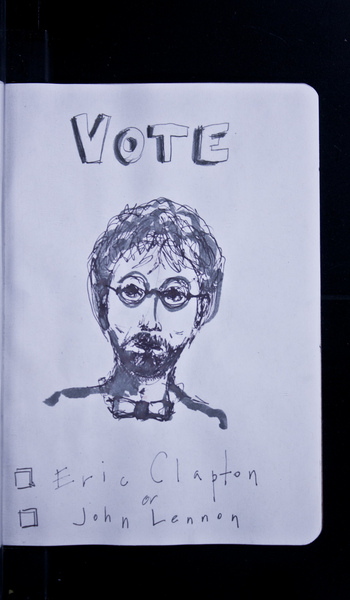 VOTE
Eric Clapton
or
John Lennon